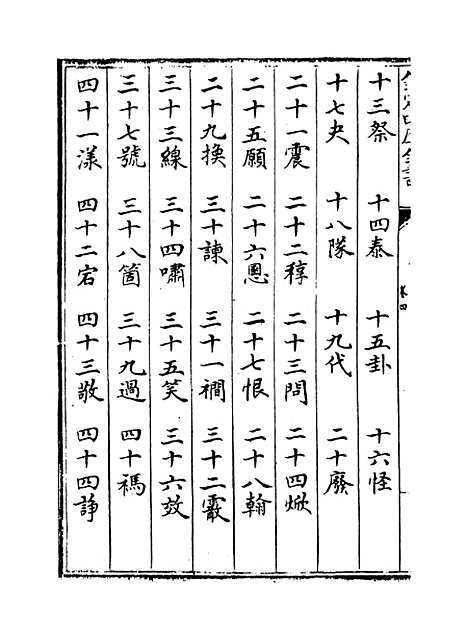 十三祭 十四泰 十五卦 十六怪
十七夬 十八隊 十九代 二十廢
二十一震 二十二稕 二十三問 二十四焮
二十五願 二十六慁 二十七恨 二十八翰
二十九換 三十諫 三十一襇 三十二霰
三十三線 三十四嘯 三十五笑 三十六效
三十七號 三十八箇 三十九過 四十禡
四十一漾 四十二宕 四十三敬 四十四諍